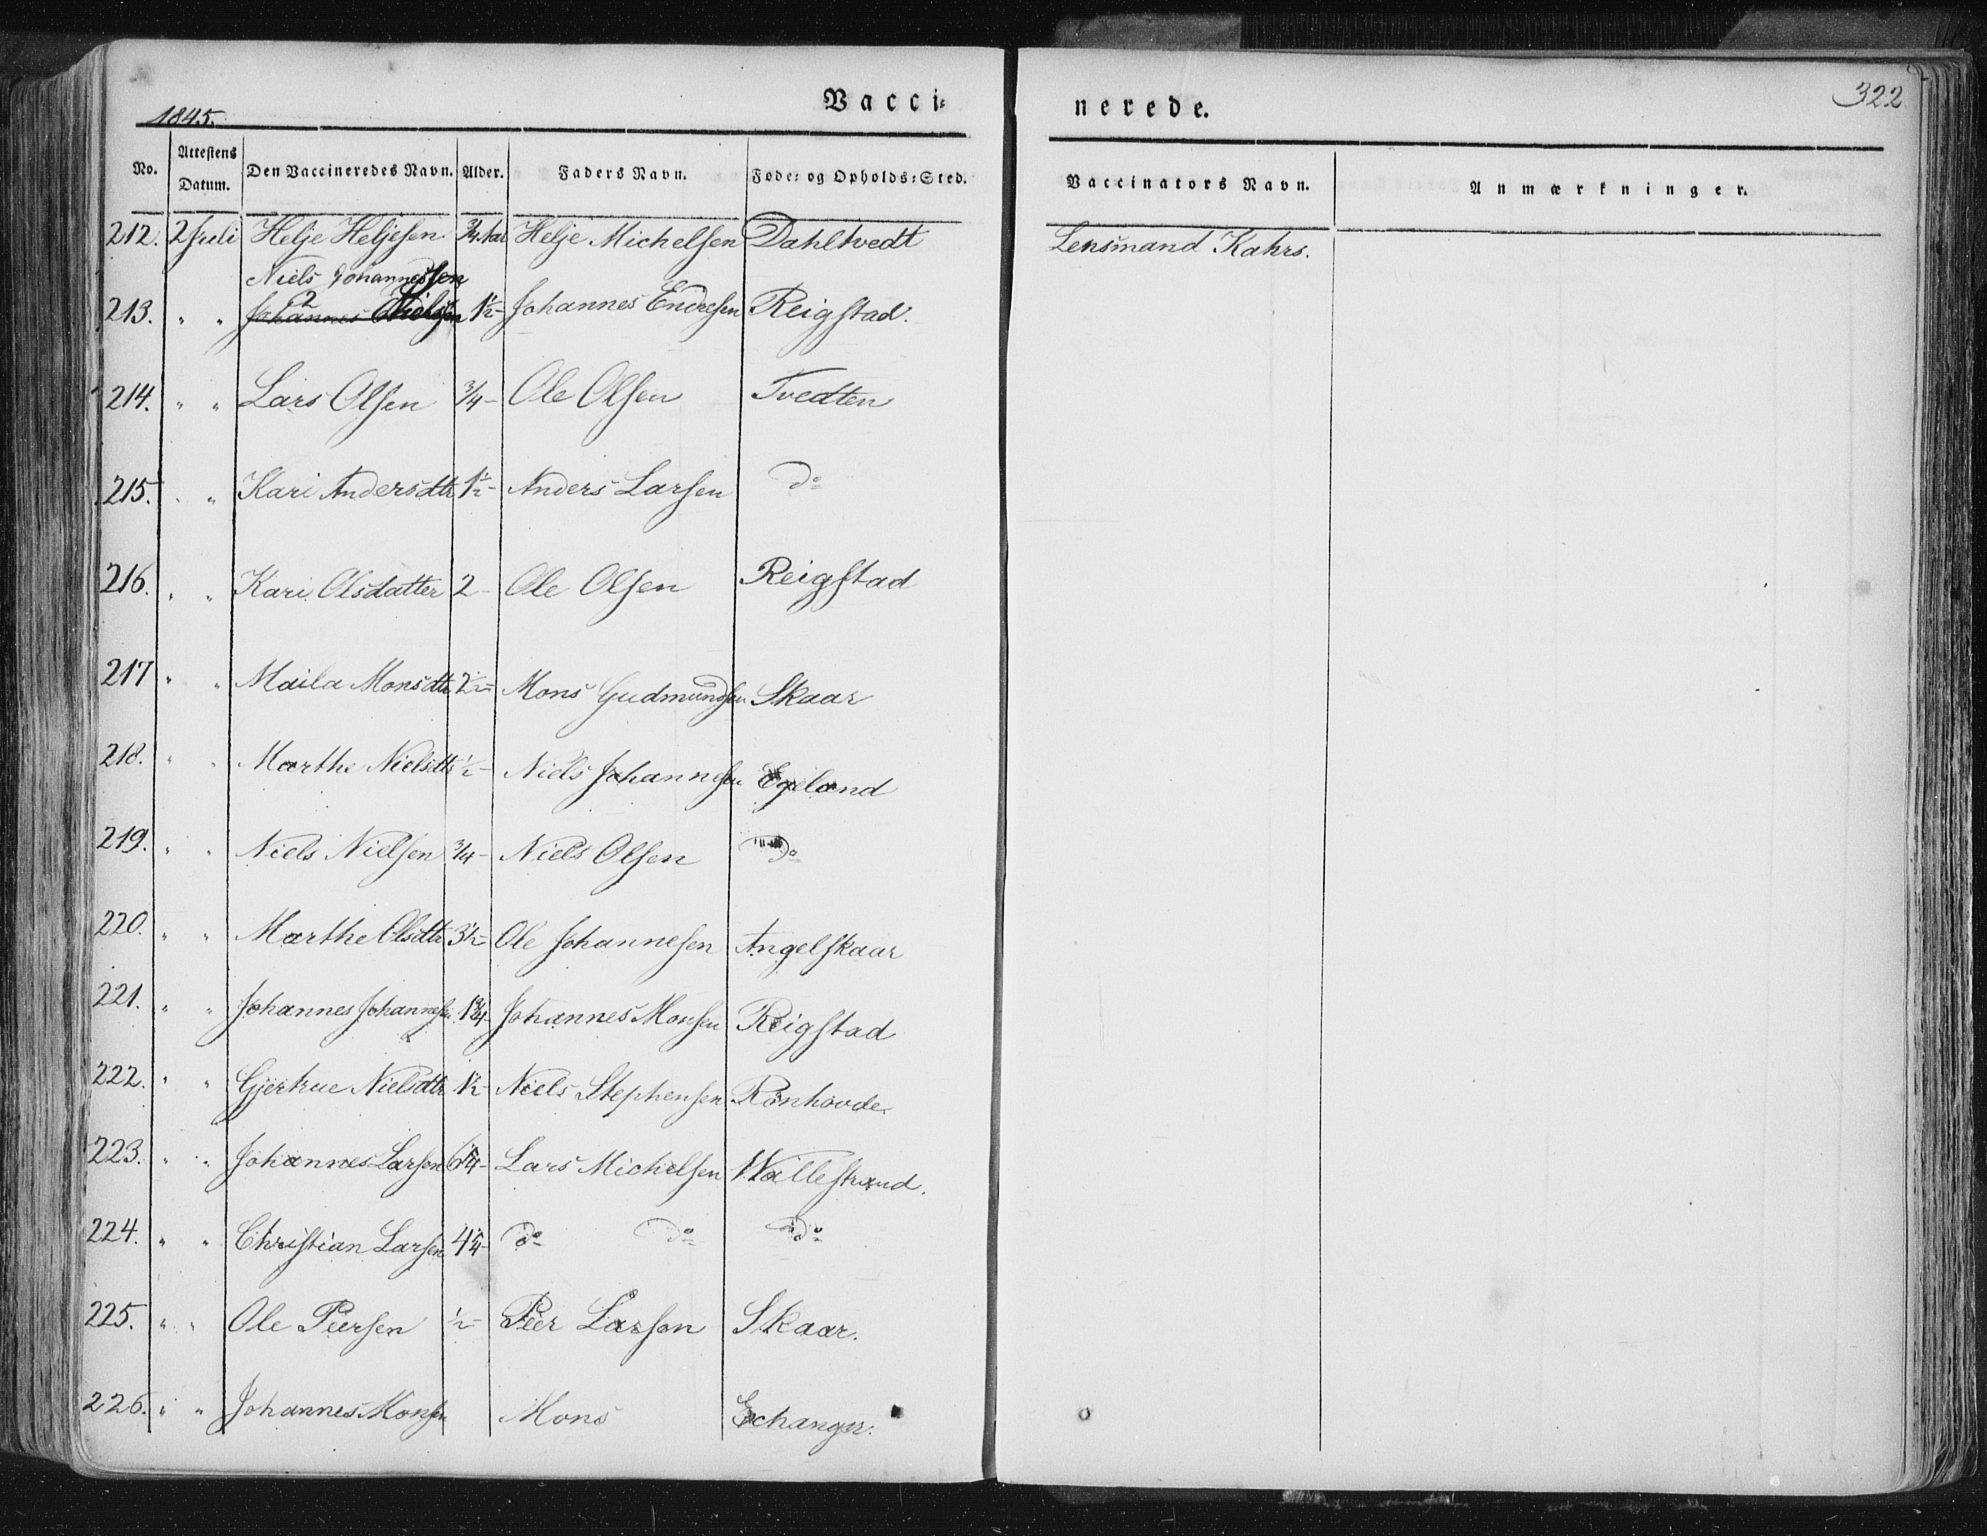 322
1845.
Vacci=
nerede.
No. Attestens Datum. Den Vaccineredes Navn. Alder. Faders Navn. Føde= og Opholds=Sted. Vaccinators Navn. Anmærkninger.
212. 2 Juli Helje Heljesen 3/4 Aar Helje Michelsen Dahltvedt Lensmand Kahrs.
Niels Johannessen
213. " " Johannes Nielsen 1½ - Johannes Endresen Reigstad.
214. " " Lars Olsen 3/4 - Ole Olsen Tvedten
215. " " Kari Andersdtr 1½ - Anders Larsen do
216. " " Kari Olsdatter 2 - Ole Olsen Reigstad
217 " " Maila Monsdtr Mons Gudmundsen Skaar
218. " " Marthe Nielsdtr ½ - Niels Johannesen Egeland
219. " " Niels Nielsen 3/4 - Niels Olsen do
220. " " Marthe Olsdtr 3½ - Ole Johannesen Angelskaar
221. " " Johannes Johannesen 1 3/4 - Johannes Monsen Reigstad
222. " " Gjertrue Nielsdtr 1½ - Niels Stephensen Rønhovde.
223. " " Johannes Larsen 6 1/4 - Lars Michelsen Wallestrand.
224. " " Christian Larsen 4 1/4 - do do do
225. " " Ole Peersen ½ - Peer Larsen Skaar.
226. " " Johannes Monsen Mons Echanger.